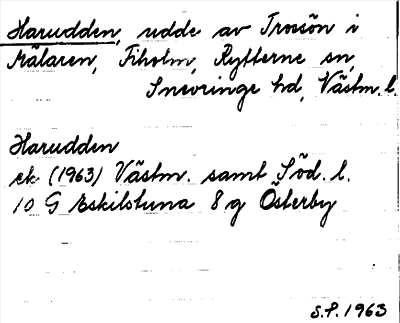 Harudden, udde av Trosön i
Mälaren, Fiholm, Rytterne sn,
Snevringe hd, Västm. l.
Harudden
ek. (1963) Västm. samt Söd. l.
10 G Eskilstuna 8 g Österby
S.F. 1963